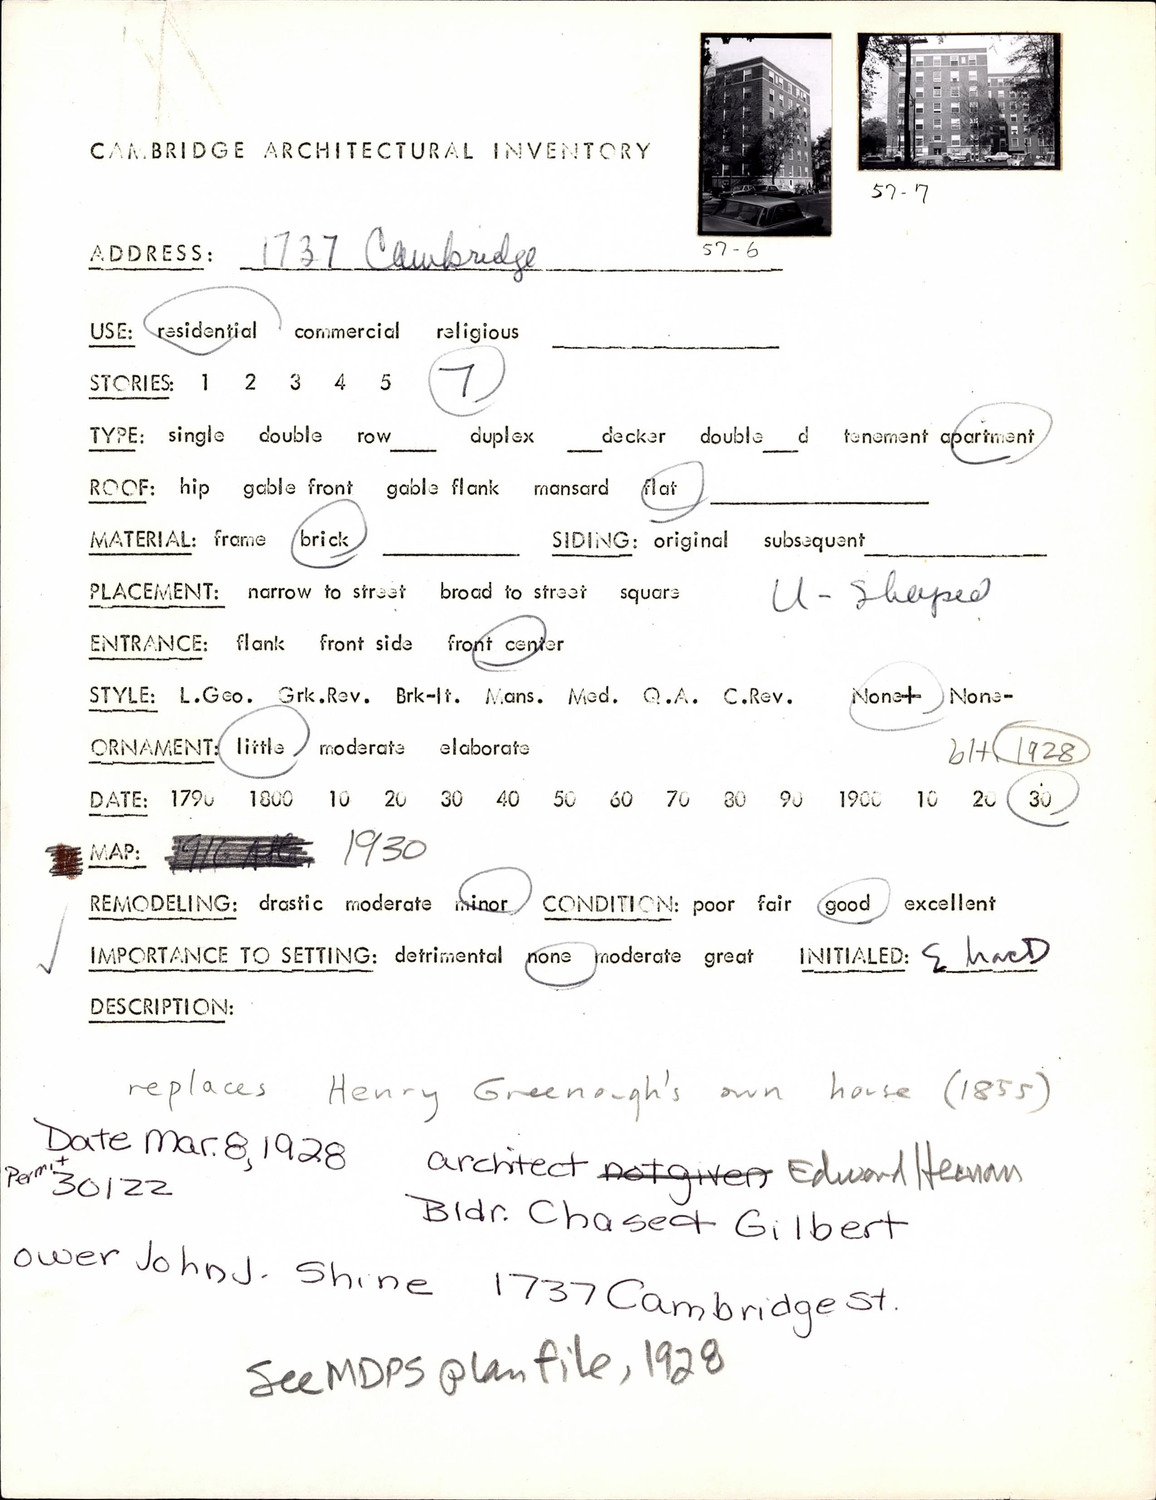 CAMBRIDGE ARCHITECTURAL INVENTORY
57-7
57-6
ADDRESS: 1737 Cambridge
USE: residential commercial religious
STORIES: 1 2 3 4 5 7
TYPE: single double row___ duplex ___decker double___d tenement apartment
ROOF: hip gable front gable flank mansard flat
MATERIAL: frame brick SIDING: original subsequent
PLACEMENT: narrow to street broad to street square U-Shaped
ENTRANCE: flank front side front center
STYLE: L.Geo. Grk.Rev. Brk-It. Mans. Med. Q.A. C.Rev. None+ None-
ORNAMENT: little moderate elaborate blt. 1928
DATE: 1790 1800 10 20 30 40 50 60 70 80 90 1900 10 20 30
MAP: 1930
REMODELING: drastic moderate minor CONDITION: poor fair good excellent
IMPORTANCE TO SETTING: detrimental none moderate great INITIALED:
DESCRIPTION:
replaces Henry Greenough's own house (1855)
Date Mar. 8, 1928
Permit 30122
architect not given Edward
Bldr. Chase & Gilbert
ower John J. Shine 1737 Cambridge St.
See MDPS plan file, 1928